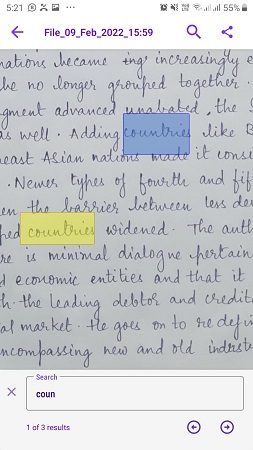 5:21 55%
File_09_Feb_2022_15:59
nations became ing increasingly e
be no longer grouped together.
gment advanced unabated, the S
as well. Adding countries like B
east Asian nations made it consi
. Newer types of fourth and fif
en the barrier between less de
ped countries widened. The auth
re is minimal dialogue pertain
d economic entities and that it
h. the leading debtor and credit
al market. He goes on to re defi
ncompassing new and old industr
Search
coun
1 of 3 results